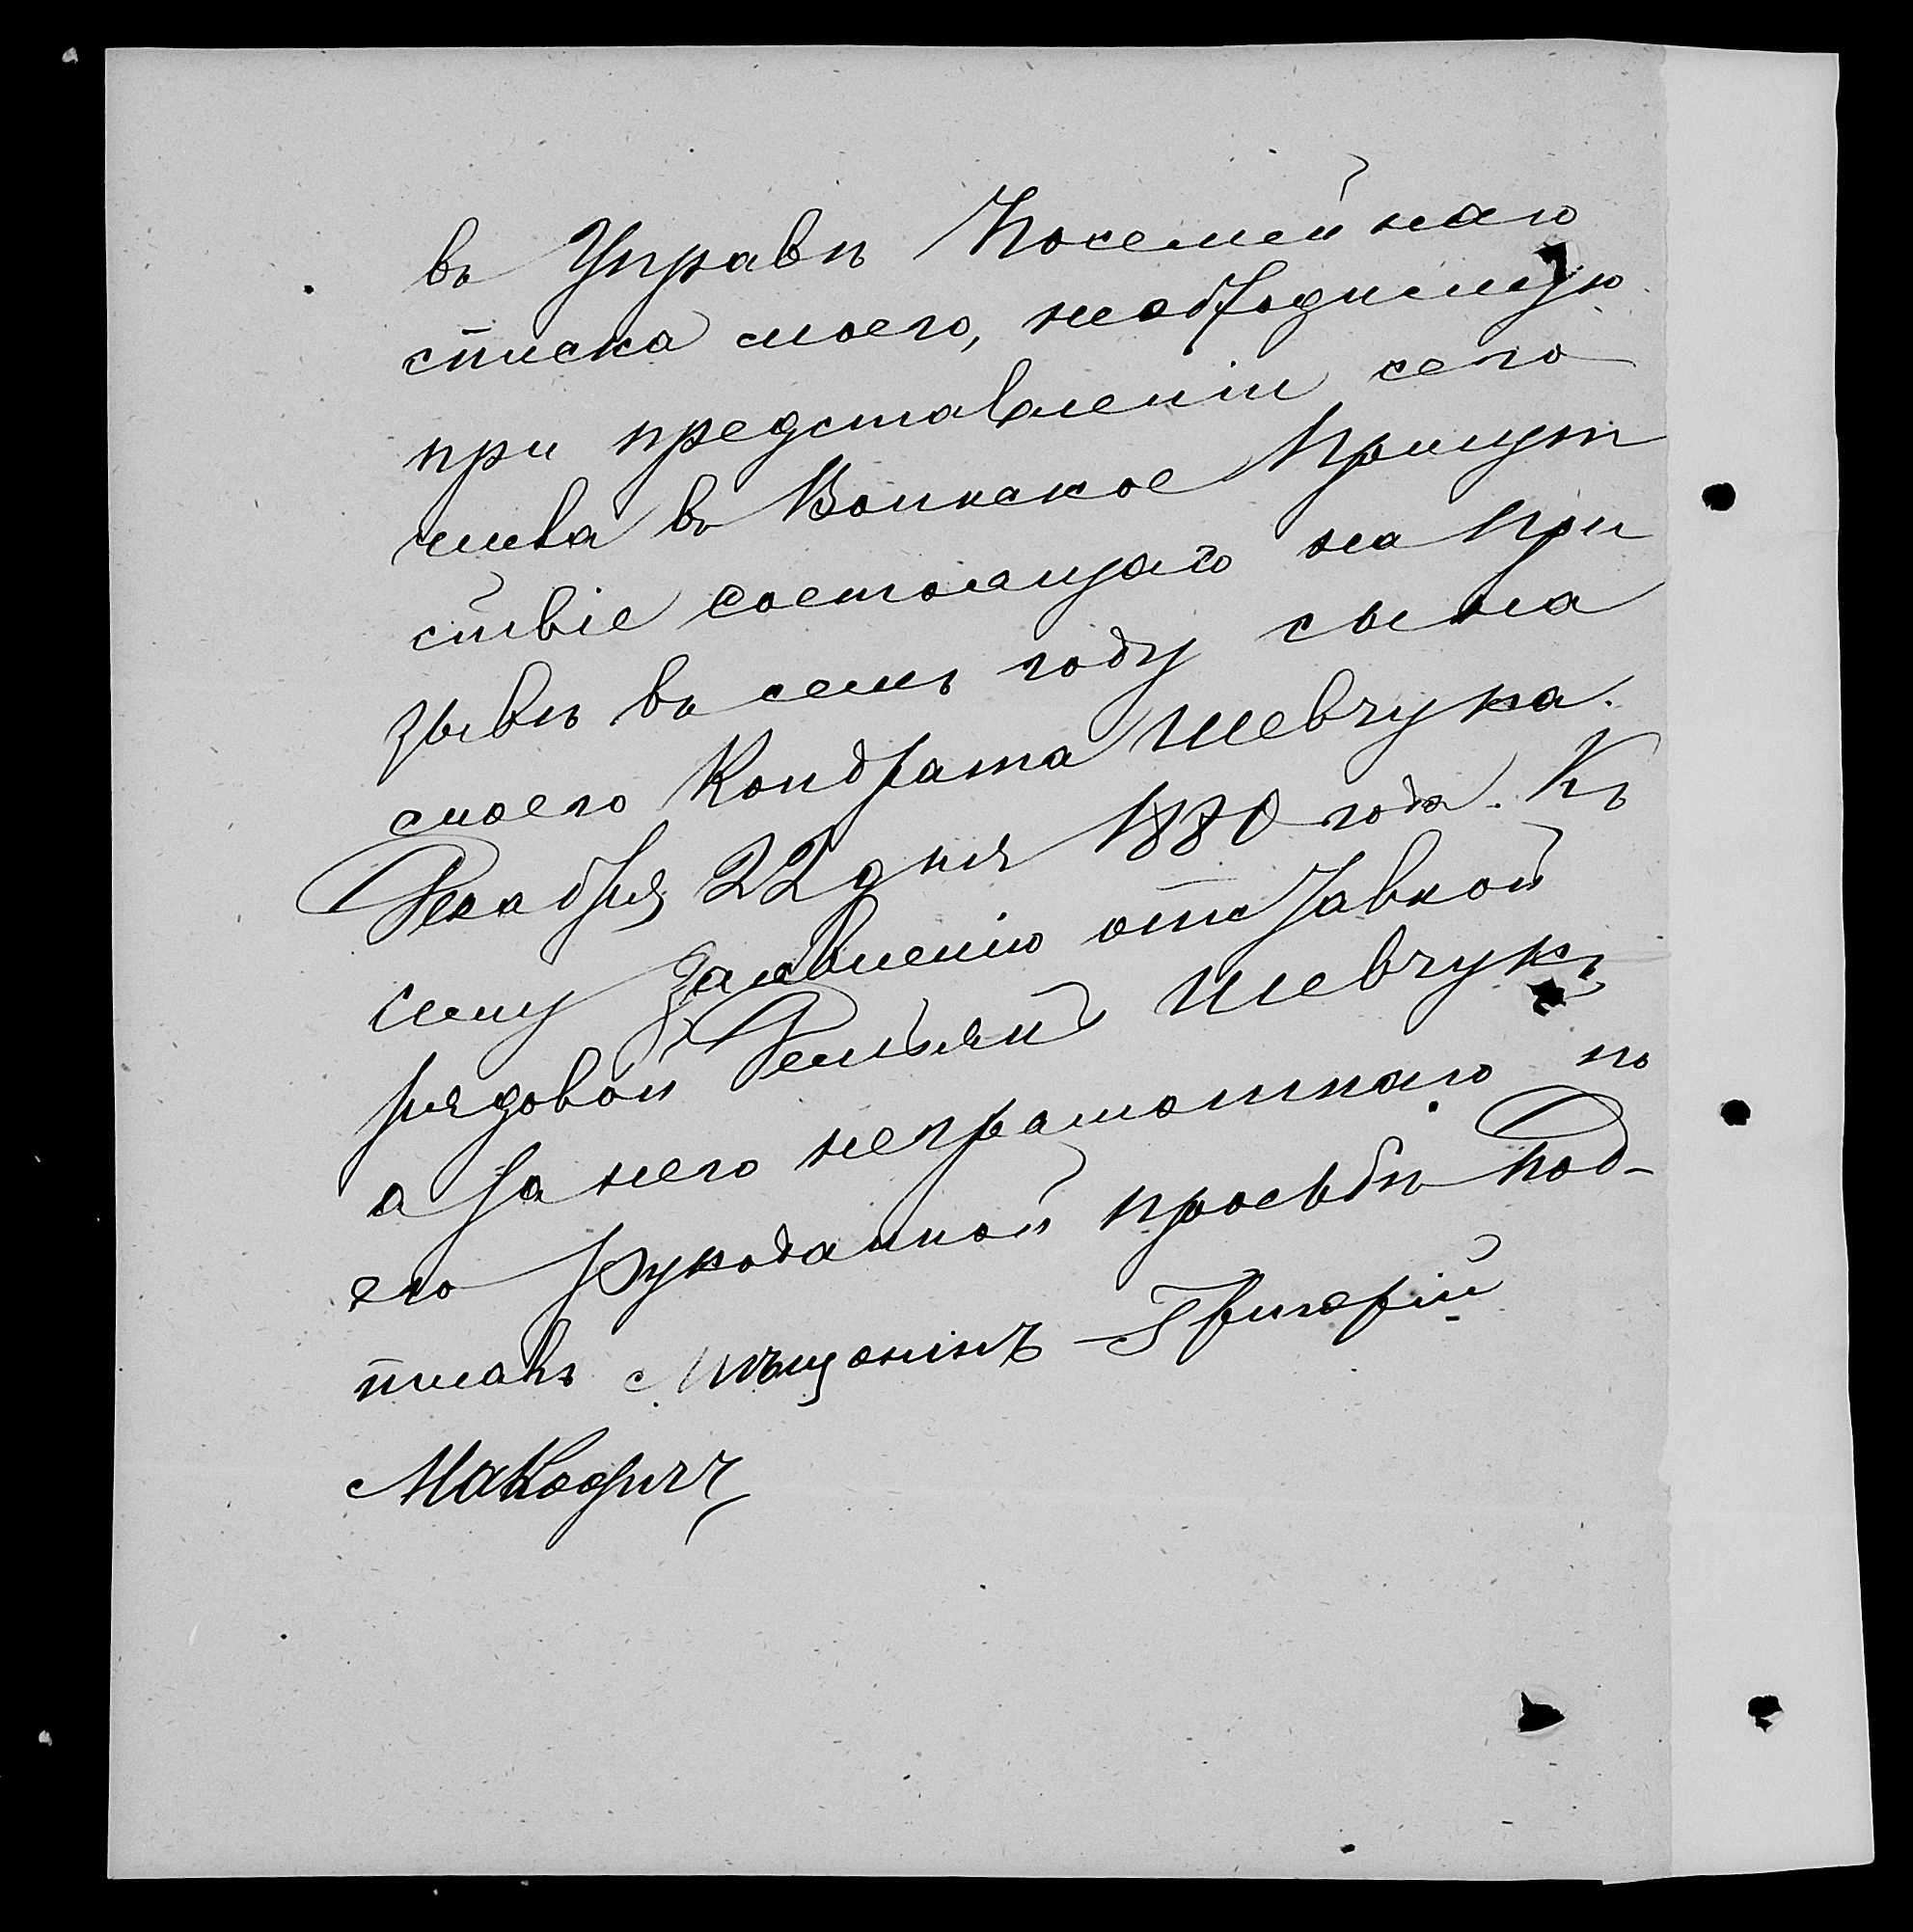 въ Управѣ Посемейнаго
списка моего, необходимую
при представленіи сего
чива въ Воинское Присут
ствіе состоящаго на При
зывѣ въ семъ году сына
моего Кондрата Шевчука.
Декабря 22 дня 1880 года. Къ
сему Заявленію отставной
рядовой Демьянъ Шевчукъ
а за него неграмотнаго по
его Рукоданной просьбѣ Под-
писалъ Мѣщанинъ Григорій